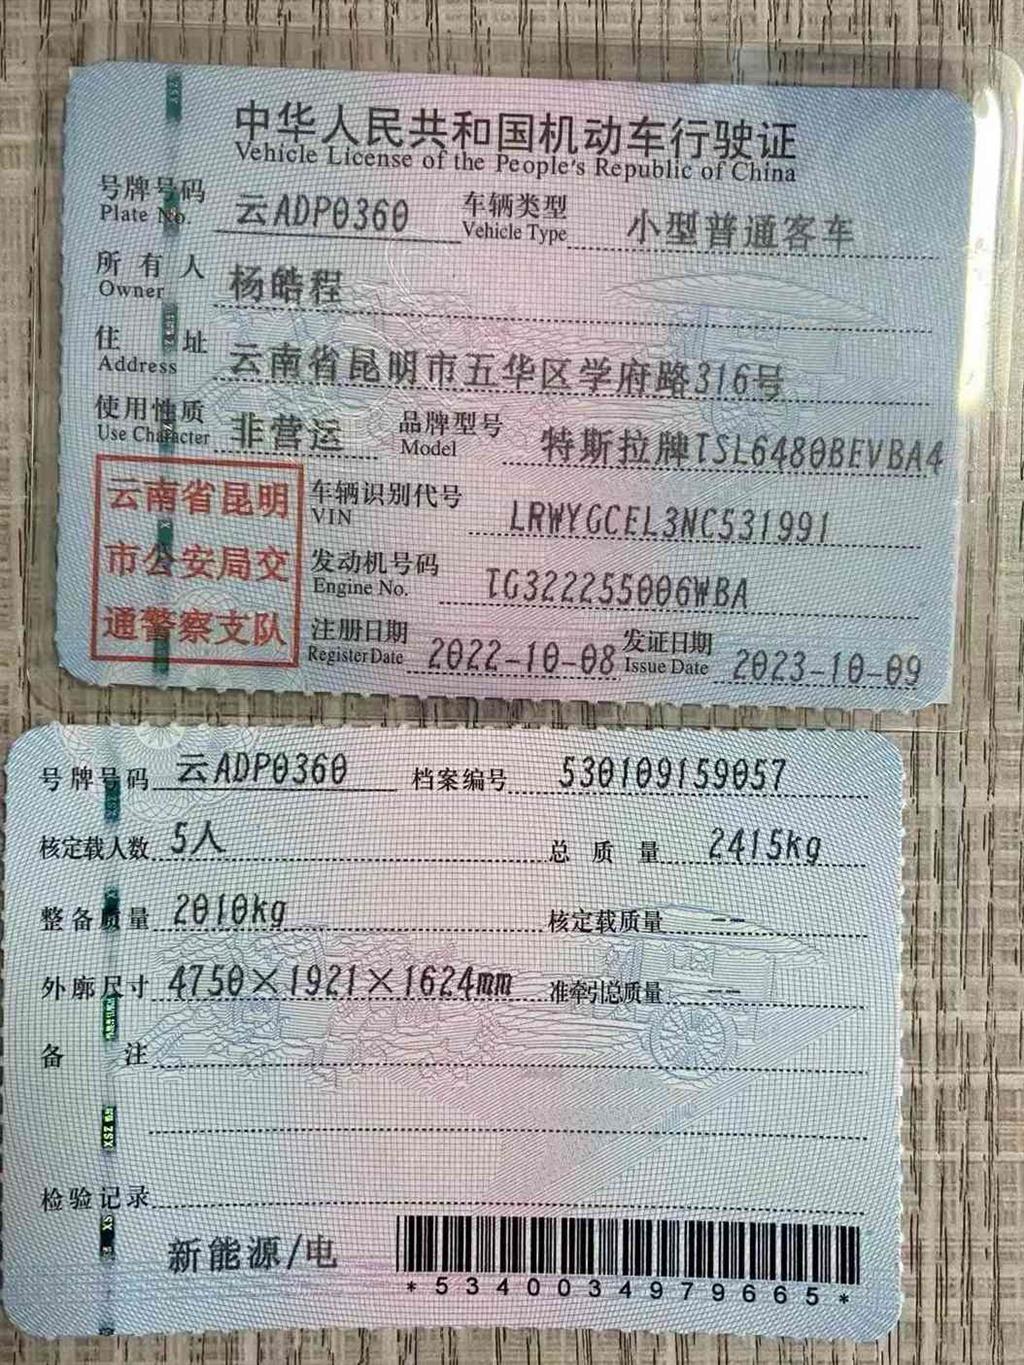 中华人民共和国机动车行驶证
Vehicle License of the People's Republic of China
号牌号码 云ADP0360 车辆类型 小型普通客车
Plate No. Vehicle Type
所有人 杨皓程
Owner
住址 云南省昆明市五华区学府路316号
Address
使用性质 非营运 品牌型号 特斯拉牌TSL6480BEVBA4
Use Character Model
云南省昆明
市公安局交
通警察支队
车辆识别代号 LRWYGCEL3NC531991
VIN
发动机号码 TG322255006WBA
Engine No.
注册日期 2022-10-08 发证日期 2023-10-09
Register Date Issue Date
号牌号码 云ADP0360 档案编号 530109159057
核定载人数 5人 总质量 2415kg
整备质量 2010kg 核定载质量 --
外廓尺寸 4750×1921×1624mm 准牵引总质量 --
备注
检验记录
新能源/电
*5340034979665*